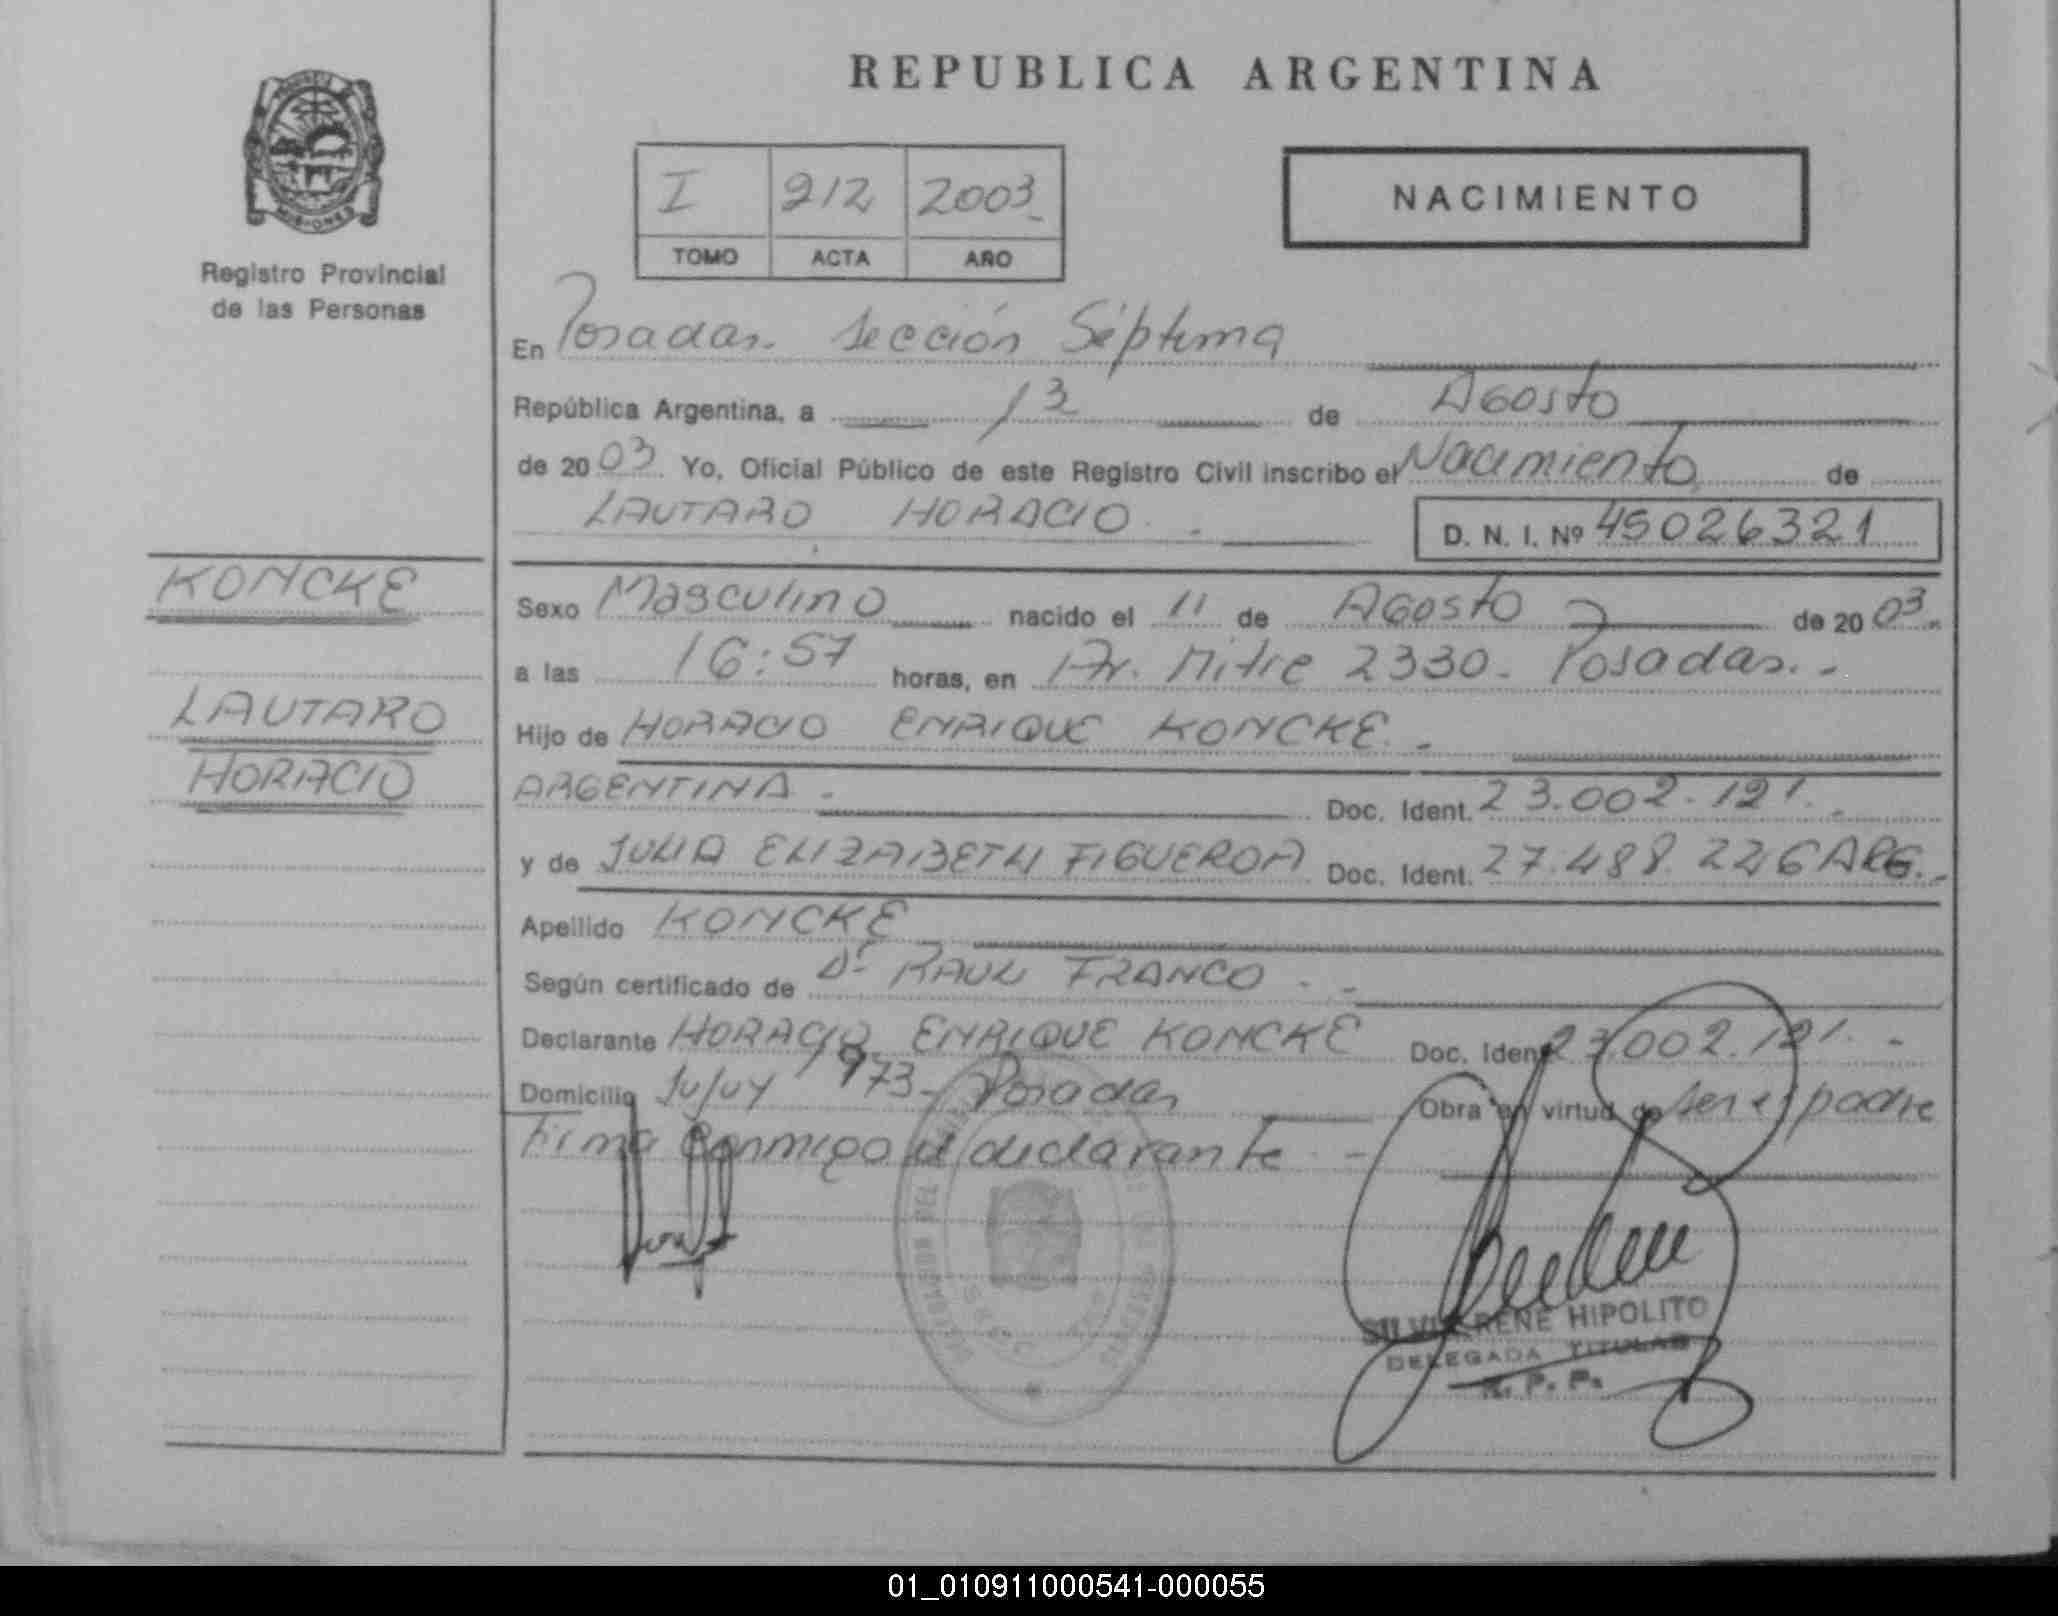 REPUBLICA ARGENTINA
I 212 2003
TOMO ACTA AÑO
NACIMIENTO
MISIONES
Registro Provincial
de las Personas
En Posadas. Sección Séptima
República Argentina, a 13 de Agosto
de 2003. Yo, Oficial Público de este Registro Civil inscribo el Nacimiento de
LAUTARO HORACIO. -
D. N. I. Nº 45026321
KONCKE
LAUTARO
HORACIO
Sexo Masculino nacido el 11 de Agosto de 2003.
a las 16:57 horas, en Av. Mitre 2330. Posadas. -
Hijo de HORACIO ENRIQUE KONCKE. -
ARGENTINA. - Doc. Ident. 23.002.121. -
y de JULIA ELIZABETH FIGUEROA Doc. Ident. 27.488.226 ARG. -
Apellido KONCKE
Según certificado de Dr. RAUL FRANCO. -
Declarante HORACIO ENRIQUE KONCKE Doc. Ident 23.002.121. -
Domicilio Jujuy 1973. Posadas Obra en virtud de ser el padre
Firma Conmigo el declarante. -
RENE HIPOLITO
DELEGADA TITULAR
R. P. P.
01_010911000541-000055